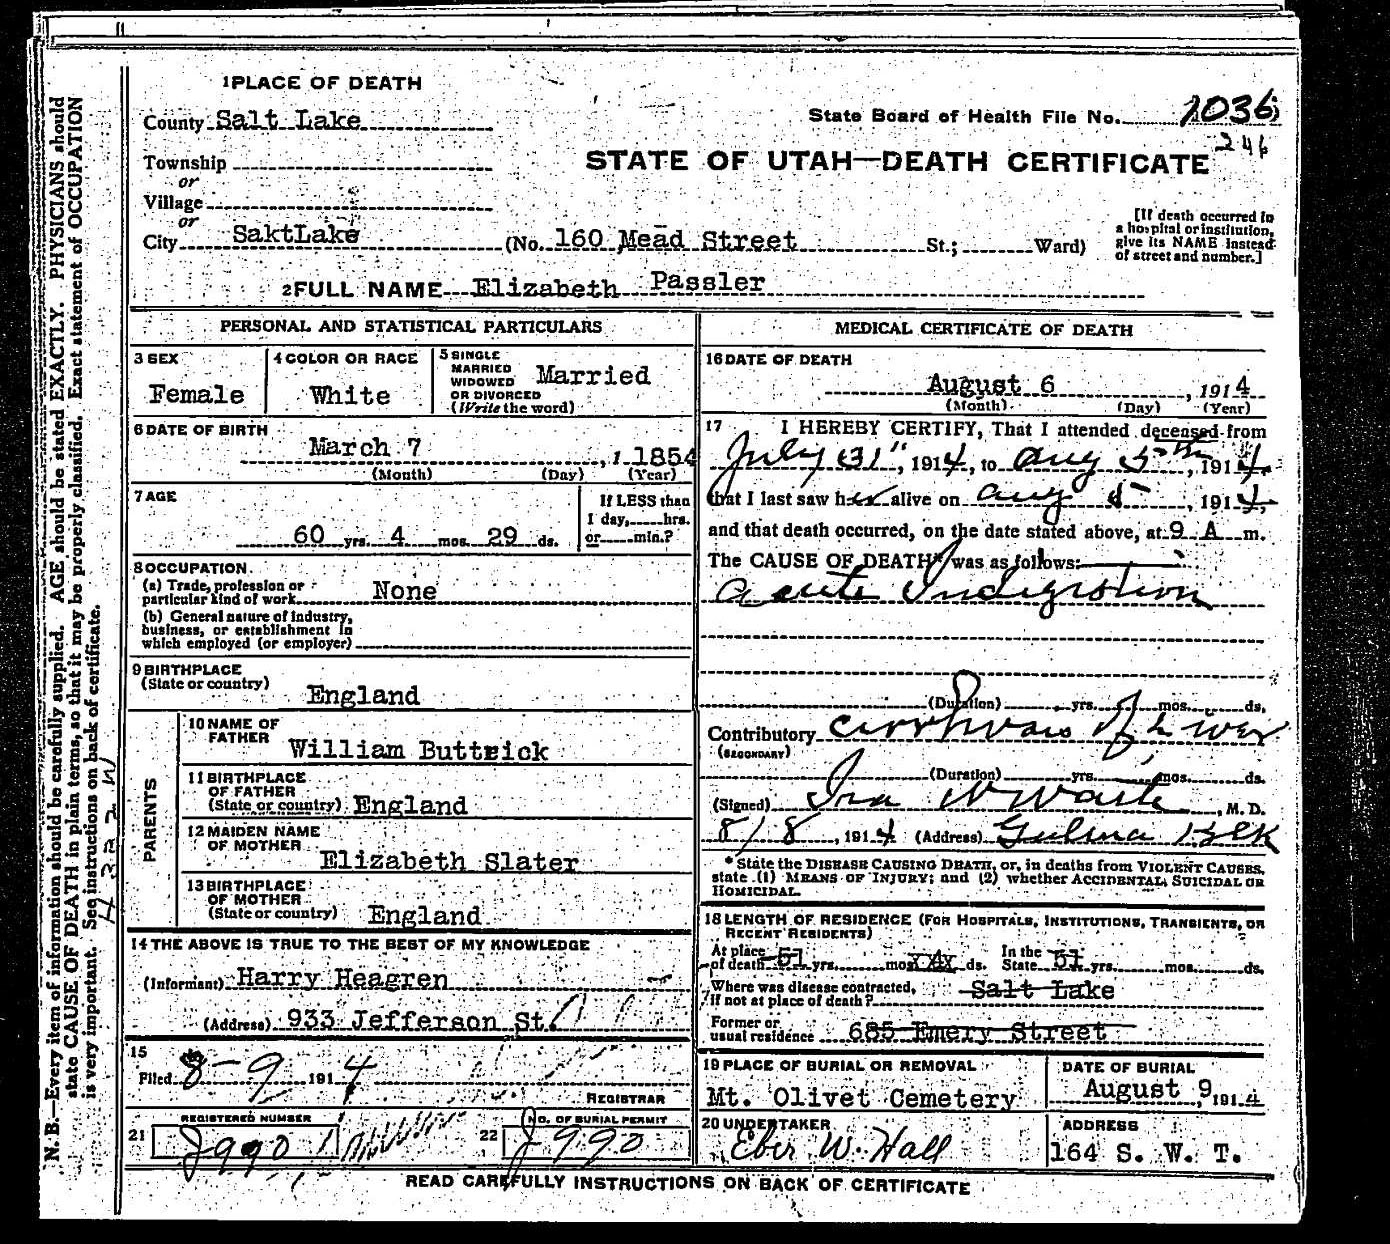 1 PLACE OF DEATH
County Salt Lake
State Board of Health File No. 1036
246
Township
STATE OF UTAH—DEATH CERTIFICATE
or
Village
or
City SaktLake (No. 160 Mead Street St.; Ward)
[If death occurred in
a hospital or institution,
give its NAME instead
of street and number.]
2 FULL NAME Elizabeth Passler
PERSONAL AND STATISTICAL PARTICULARS
3 SEX
Female
4 COLOR OR RACE
White
5 SINGLE
MARRIED
WIDOWED
OR DIVORCED
(Write the word)
Married
6 DATE OF BIRTH
March 7, 1 1854
(Month) (Day) (Year)
7 AGE
60 yrs. 4 mos. 29 ds.
If LESS than
1 day, hrs.
or min.?
8 OCCUPATION
(a) Trade, profession or
particular kind of work None
(b) General nature of industry,
business, or establishment in
which employed (or employer)
9 BIRTHPLACE
(State or country)
England
PARENTS
10 NAME OF
FATHER
William Buttrick
11 BIRTHPLACE
OF FATHER
(State or country) England
12 MAIDEN NAME
OF MOTHER
Elizabeth Slater
13 BIRTHPLACE
OF MOTHER
(State or country) England
14 THE ABOVE IS TRUE TO THE BEST OF MY KNOWLEDGE
(Informant) Harry Heagren
(Address) 933 Jefferson St.
15
Filed 8-9 1914
REGISTRAR
REGISTERED NUMBER
21 J990
NO. OF BURIAL PERMIT
22 J990
MEDICAL CERTIFICATE OF DEATH
16 DATE OF DEATH
August 6, 1914
(Month) (Day) (Year)
17 I HEREBY CERTIFY, That I attended deceased from
July 31", 1914, to Aug 5th, 1914,
that I last saw her alive on Aug 5, 1914,
and that death occurred, on the date stated above, at 9 A m.
The CAUSE OF DEATH* was as follows:
Acute Indigestion
(Duration) yrs. mos. ds.
Contributory Cirrhosis of Liver
(SECONDARY)
(Duration) yrs. mos. ds.
(Signed) Ira W, M. D.
8/8, 1914 (Address)
* State the DISEASE CAUSING DEATH, or, in deaths from VIOLENT CAUSES,
state (1) MEANS OF INJURY; and (2) whether ACCIDENTAL, SUICIDAL OR
HOMICIDAL.
18 LENGTH OF RESIDENCE (FOR HOSPITALS, INSTITUTIONS, TRANSIENTS, OR
RECENT RESIDENTS)
At place
of death 51 yrs. mos. ds.
In the
State 51 yrs. mos. ds.
Where was disease contracted,
if not at place of death? Salt Lake
Former or
usual residence 685 Emery Street
19 PLACE OF BURIAL OR REMOVAL
Mt. Olivet Cemetery
DATE OF BURIAL
August 9, 1914
20 UNDERTAKER
Eber W. Hall
ADDRESS
164 S. W. T.
READ CAREFULLY INSTRUCTIONS ON BACK OF CERTIFICATE
N. B.—Every item of information should be carefully supplied. AGE should be stated EXACTLY. PHYSICIANS should
state CAUSE OF DEATH in plain terms, so that it may be properly classified. Exact statement of OCCUPATION
is very important. See instructions on back of certificate.